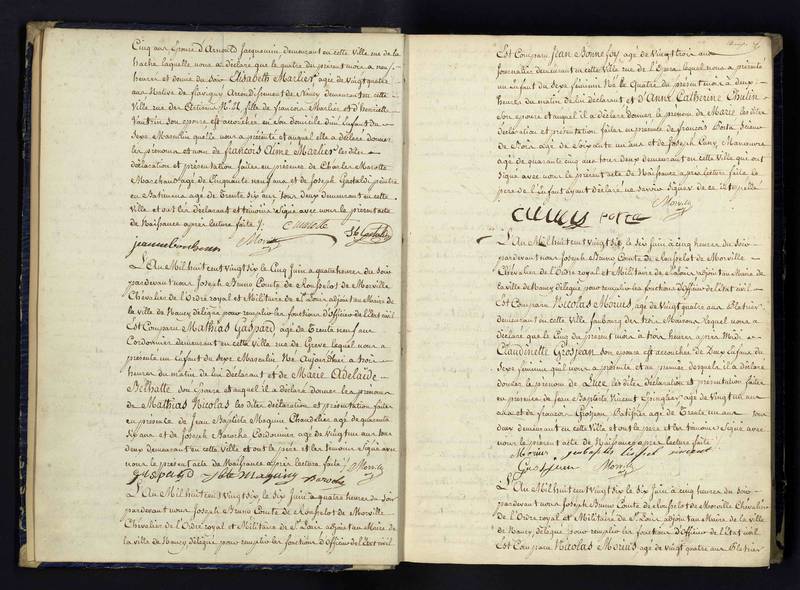 Cinq ans Epouse d'Arnould Jacquemin demeurant en cette Ville rue de la
hache laquelle nous a déclaré que le quatre du présent mois à neuf
heures et demie du soir Elisabeth Marlier agée de Vingt quatre
ans Native de flavigny Arrondissement de Nancy demeurant en cette
Ville rue des Artisans N° 21 fille de françois Marlier et d'henriette
Vautrin son épouse est accouchée en son domicile d'un Enfant du
Sexe Masculin qu'elle nous a présenté et auquel elle a déclaré donner
les prénoms et nom de françois Aimé Marlier les dites
déclaration et présentation faites en présence de Charles Marotte
Marchand agé de Cinquante neuf ans et de Joseph Gastaldi peintre
en Batimens agé de Trente six ans tous deux demeurant en cette
Ville et ont les déclarant et témoins Signé avec nous le présent acte
de Naissance après lecture faite /.
Morville
L'An Mil huit cent vingt six le Cinq Juin à quatre heures du soir
pardevant nous Joseph Bruno Comte de Rousselot de Morville
Chevalier de l'Ordre royal et Militaire de St Louis adjoint au Maire de
la ville de Nancy délégué pour remplir les fonctions d'Officier de l'état civil
Est Comparu Mathias Gaspard agé de Trente neuf ans
Cordonnier demeurant en cette Ville rue de Greve lequel nous a
présenté un Enfant du Sexe Masculin Né Aujourd'hui à trois
heures du matin de lui déclarant et de Marie Adelaide
son Epouse et auquel il a déclaré donner les prénoms
de Matthias Nicolas les dites déclaration et présentation faites
en présence de Jean Baptiste Maguin Chandelier agé de quarante
ans et de Joseph Cordonnier agé de vingt ans tous
deux demeurant en cette Ville et ont le père et les témoins Signé avec
nous le présent acte de Naissance après lecture faite /.
gaspard
L'An Mil huit cent vingt six le six Juin à quatre heures du soir
pardevant nous Joseph Bruno Comte de Rousselot de Morville
Chevalier de l'Ordre royal et Militaire de St Louis adjoint au Maire de
la ville de Nancy délégué pour remplir les fonctions d'Officier de l'état civil
Est Comparu Jean Bonnefoy agé de Vingt trois ans
Journalier demeurant en cette Ville rue de l'Opera lequel nous a présenté
un Enfant du Sexe féminin Né le Quatre du présent mois à deux
heures du matin de lui déclarant et d'Anne Catherine
Son épouse et auquel il a déclaré donner le prénom de Marie les dites
déclaration et présentation faites en présence de françois
de Bois agé de Soixante un ans et de Joseph Cuny Manœuvre
agé de quarante cinq ans tous deux demeurant en cette Ville qui ont
signé avec nous le présent acte de Naissance après lecture faite le
père de l'Enfant ayant déclaré ne savoir signer de ce interpellé
Morville
L'An Mil huit cent Vingt six le six Juin à cinq heures du soir
pardevant nous Joseph Bruno Comte de Rousselot de Morville
Chevalier de l'Ordre royal et Militaire de St Louis adjoint au Maire de
la ville de Nancy délégué pour remplir les fonctions d'Officier de l'état civil
Est Comparu Nicolas Morius agé de Vingt quatre ans Platrier
demeurant en cette Ville faubourg des trois Maisons lequel nous a
déclaré que le Cinq du présent mois à trois heures après Midi
Claudinette Grosjean son épouse est accouchée de Deux Enfans du
Sexe féminin qu'il nous a présenté et au premier desquels il a déclaré
donner le prénom de Luce les dites déclaration et présentation faites
en présence de Jean Baptiste Vincent agé de Vingt un
ans et de françois Grosjean Patissier agé de Trente un ans tous
deux demeurant en cette Ville et ont le père et les témoins Signé avec
nous le présent acte de Naissance après lecture faite /.
Morius
Morville
L'An Mil huit cent Vingt six le six Juin à cinq heures du soir
pardevant nous Joseph Bruno Comte de Rousselot de Morville Chevalier
de l'Ordre royal et Militaire de St Louis adjoint au Maire de la ville
de Nancy délégué pour remplir les fonctions d'Officier de l'état civil
Est Comparu Nicolas Morius agé de vingt quatre ans Platrier